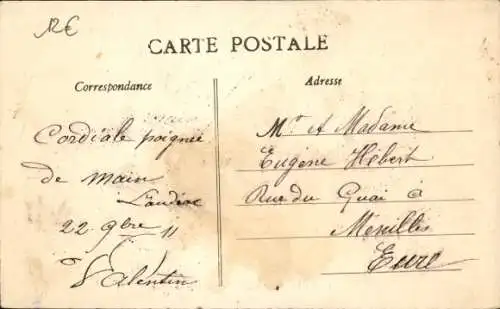 12€
CARTE POSTALE
Correspondance
Adresse
Cordiale poignée
de main
22 9bre 11
Valentin
Mr et Madame
Eugene Hébert
Rue du Quai à
Ménilles
Eure